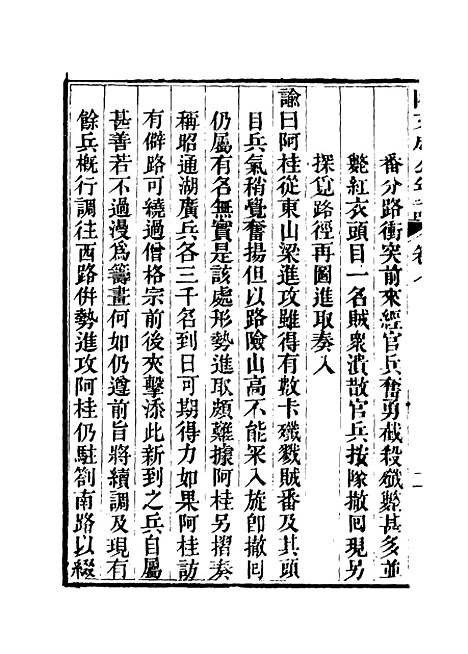 番分路衝突前來經官兵奮勇截殺殲斃甚多並
斃紅衣頭目一名賊衆潰散官兵按隊撤囘現另
探覓路徑再圖進取奏入
諭曰阿桂從東山梁進攻雖得有數卡殲戮賊番及其頭
目兵氣稍覺奮揚但以路險山高不能罙入旋卽撤囘
仍屬有名無實是該處形勢進取頗難據阿桂另摺奏
稱昭通湖廣兵各三千名到日可期得力如果阿桂訪
有僻路可繞過僧格宗前後夾擊添此新到之兵自屬
甚善若不過漫爲籌畫何如仍遵前旨將續調及現有
餘兵概行調往西路併勢進攻阿桂仍駐劄南路以綴